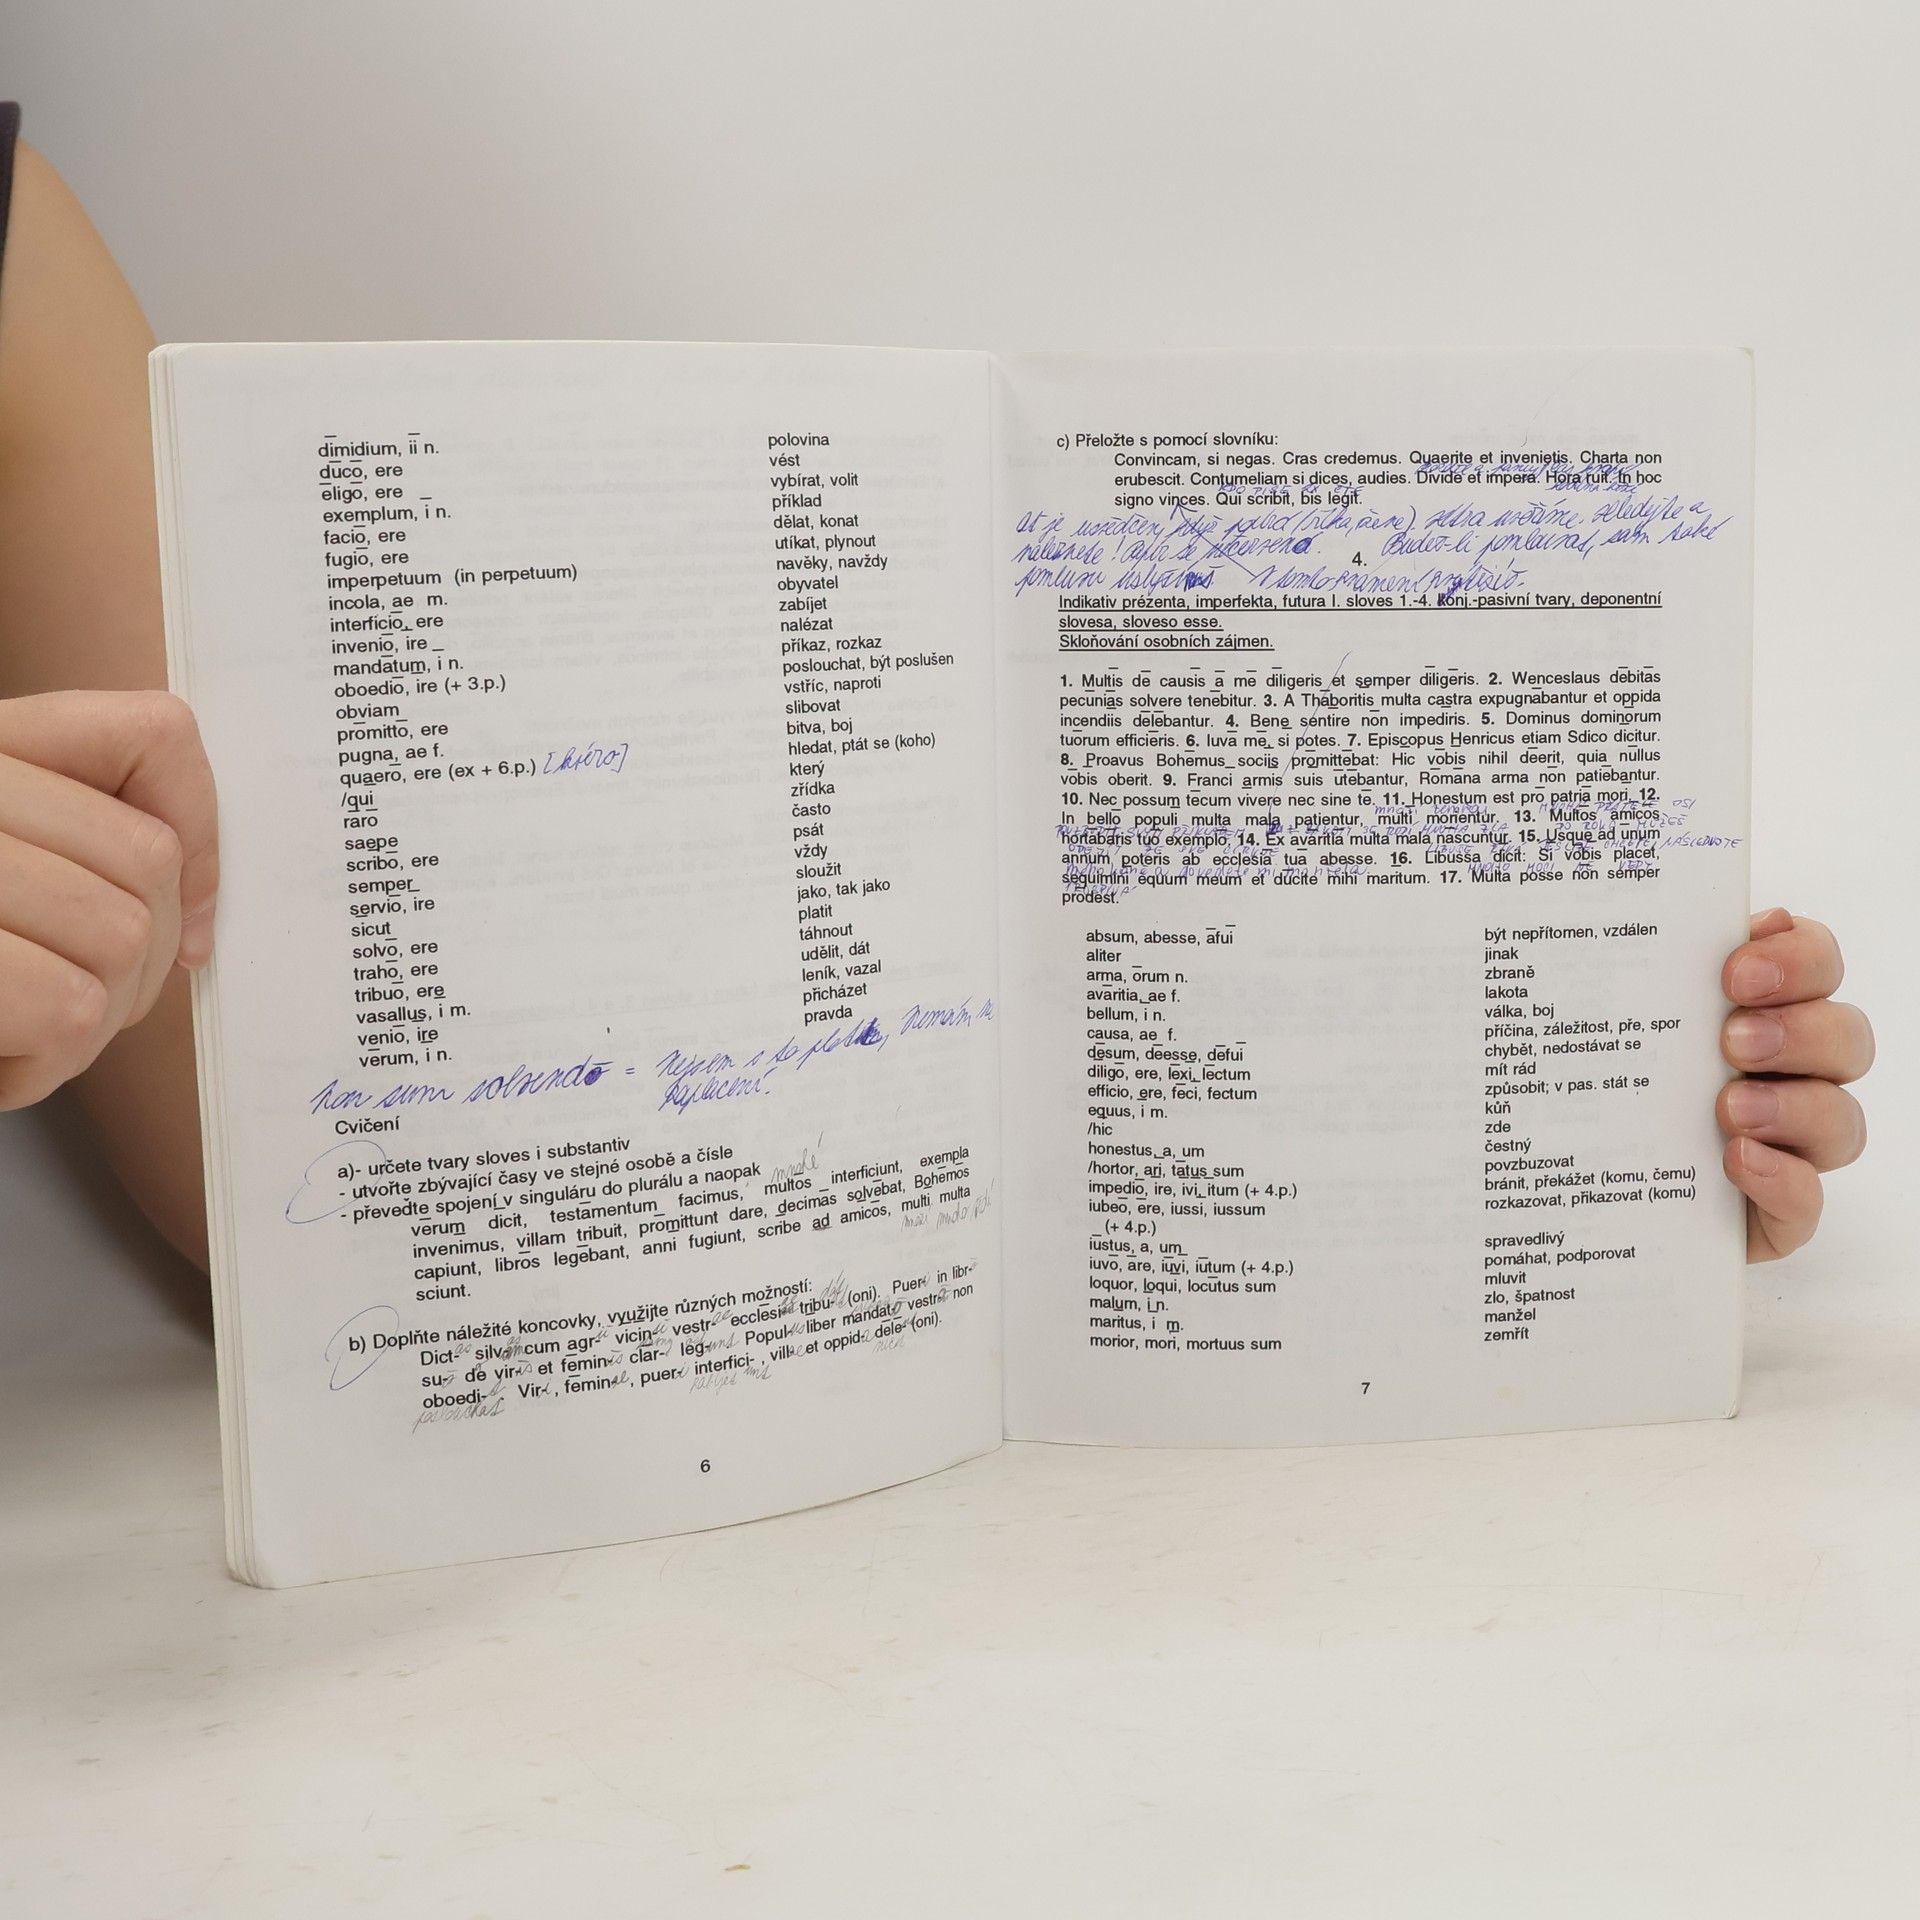 dīmidium, iī n. polovina
dūcō, ere vést
ēligō, ere vybírat, volit
exemplum, ī n. příklad
faciō, ere dělat, konat
fugiō, ere utíkat, plynout
imperpetuum (in perpetuum) navěky, navždy
incola, ae m. obyvatel
interficiō, ere zabíjet
inveniō, īre nalézat
mandātum, ī n. příkaz, rozkaz
oboediō, īre (+ 3.p.) poslouchat, být poslušen
obviam vstříc, naproti
prōmittō, ere slibovat
pugna, ae f. bitva, boj
quaerō, ere (ex + 6.p.) hledat, ptát se (koho)
/quī který
rārō zřídka
saepe často
scrībō, ere psát
semper vždy
serviō, īre sloužit
sīcut jako, tak jako
solvō, ere platit
trahō, ere táhnout
tribuō, ere udělit, dát
vasallus, ī m. leník, vazal
veniō, īre přicházet
vērum, ī n. pravda
non sum solvendō = Nejsem s to platit, nemám na
zaplacení!
Cvičení
a)- určete tvary sloves i substantiv
- utvořte zbývající časy ve stejné osobě a čísle
- převeďte spojení v singuláru do plurálu a naopak
vērum dīcit, testāmentum facimus, multōs interficiunt, exempla
invenīmus, vīllam tribuit, prōmittunt dare, decimās solvēbat, Bohēmōs
capiunt, librōs legēbant, annī fugiunt, scrībe ad amīcōs, multī multa
sciunt.
b) Doplňte náležité koncovky, využijte různých možností:
Dict- silv- cum agr- vīcīn- vestr- ecclēsi- tribu- (oni). Puer- in libr-
su- dē vir- et fēmin- clār- leg- Popul- līber mandāt- vestr- nōn
oboedi- Vir-, fēmin-, puer- interfici-, vīll- et oppid- dēlē- (oni).
6
c) Přeložte s pomocí slovníku:
Convincam, sī negās. Crās crēdēmus. Quaerite et inveniētis. Charta nōn
ērubēscit. Contumēliam sī dīcēs, audiēs. Dīvide et imperā. Hōra ruit. In hōc
signō vincēs. Quī scrībit, bis legit.
4.
Indikativ prézenta, imperfekta, futura I. sloves 1.-4. konj.-pasivní tvary, deponentní
slovesa, sloveso esse.
Skloňování osobních zájmen.
1. Multīs dē causīs ā mē dīligeris et semper dīligēris. 2. Wenceslaus dēbitās
pecūniās solvere tenēbitur. 3. A Thāborītīs multa castra expugnābantur et oppida
incendiīs dēlēbantur. 4. Bene sentīre nōn impedīris. 5. Dominus dominōrum
tuōrum efficiēris. 6. Iuvā mē, sī potes. 7. Episcopus Henrīcus etiam Sdico dīcitur.
8. Proavus Bohēmus sociīs prōmittēbat: Hīc vōbīs nihil deerit, quia nūllus
vōbīs oberit. 9. Francī armīs suīs ūtēbantur, Rōmāna arma nōn patiēbantur.
10. Nec possum tēcum vīvere nec sine tē. 11. Honestum est prō patriā morī. 12.
In bellō populī multa mala patientur, multī morientur. 13. Multōs amīcōs
hortābāris tuō exemplō. 14. Ex avāritiā multa mala nāscuntur. 15. Ūsque ad ūnum
annum poteris ab ecclēsiā tuā abesse. 16. Libussa dīcit: Sī vōbīs placet,
sequiminī equum meum et dūcite mihi marītum. 17. Multa posse nōn semper
prōdest.
absum, abesse, āfuī být nepřítomen, vzdálen
aliter jinak
arma, ōrum n. zbraně
avāritia, ae f. lakota
bellum, ī n. válka, boj
causa, ae f. příčina, záležitost, pře, spor
dēsum, deesse, dēfuī chybět, nedostávat se
dīligō, ere, lēxī, lēctum mít rád
efficiō, ere, fēcī, fectum způsobit; v pas. stát se
equus, ī m. kůň
/hīc zde
honestus, a, um čestný
/hortor, ārī, tātus sum povzbuzovat
impediō, īre, īvī, ītum (+ 4.p.) bránit, překážet (komu, čemu)
iubeō, ēre, iussī, iussum rozkazovat, přikazovat (komu)
(+ 4.p.)
iūstus, a, um spravedlivý
iuvō, āre, iūvī, iūtum (+ 4.p.) pomáhat, podporovat
loquor, loquī, locūtus sum mluvit
malum, ī n. zlo, špatnost
marītus, ī m. manžel
morior, morī, mortuus sum zemřít
7